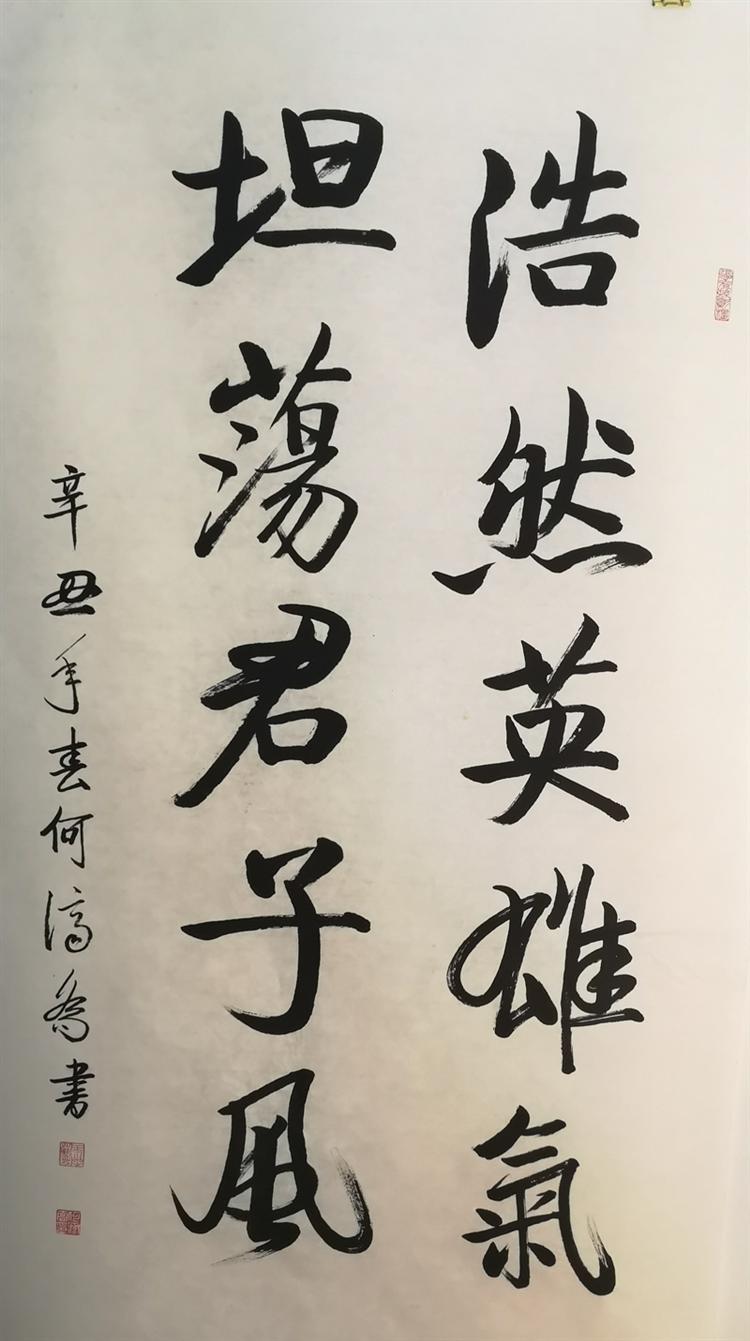 浩然英雄氣
坦蕩君子風
辛丑年春何濤喬書